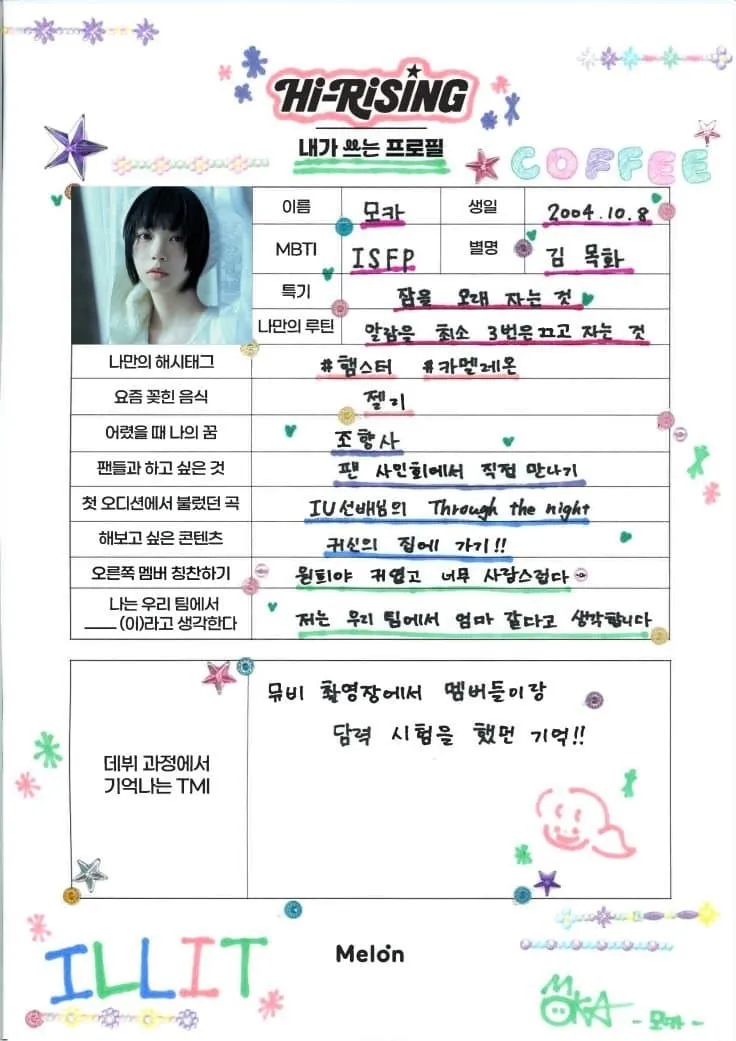 Hi-RiSiNG
내가 쓰는 프로필
COFFEE
이름 모카 생일 2004.10.8
MBTI ISFP 별명 김 목화
특기 잠을 오래 자는 것
나만의 루틴 알람을 최소 3번은 끄고 자는 것
나만의 해시태그 #햄스터 #카멜레온
요즘 꽂힌 음식 젤리
어렸을 때 나의 꿈 조향사
팬들과 하고 싶은 것 팬 사인회에서 직접 만나기
첫 오디션에서 불렀던 곡 IU선배님의 Through the night
해보고 싶은 콘텐츠 귀신의 집에 가기!!
오른쪽 멤버 칭찬하기 원희야 귀엽고 너무 사랑스럽다
나는 우리 팀에서
____ (이)라고 생각한다 저는 우리 팀에서 엄마 같다고 생각합니다
데뷔 과정에서
기억나는 TMI
뮤비 촬영장에서 멤버들이랑
담력 시험을 했던 기억!!
ILLIT
Melon
MOKA
- 모카 -